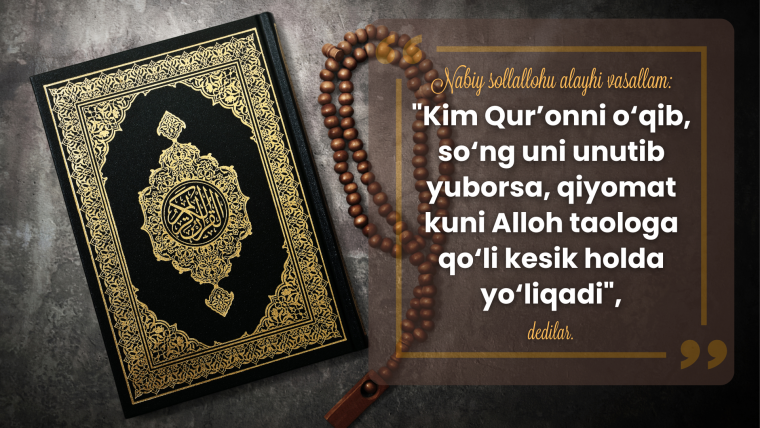 القرآن الكريم
Nabiy sollallohu alayhi vasallam:
"Kim Qur’onni o‘qib,
so‘ng uni unutib
yuborsa, qiyomat
kuni Alloh taologa
qo‘li kesik holda
yo‘liqadi",
dedilar.